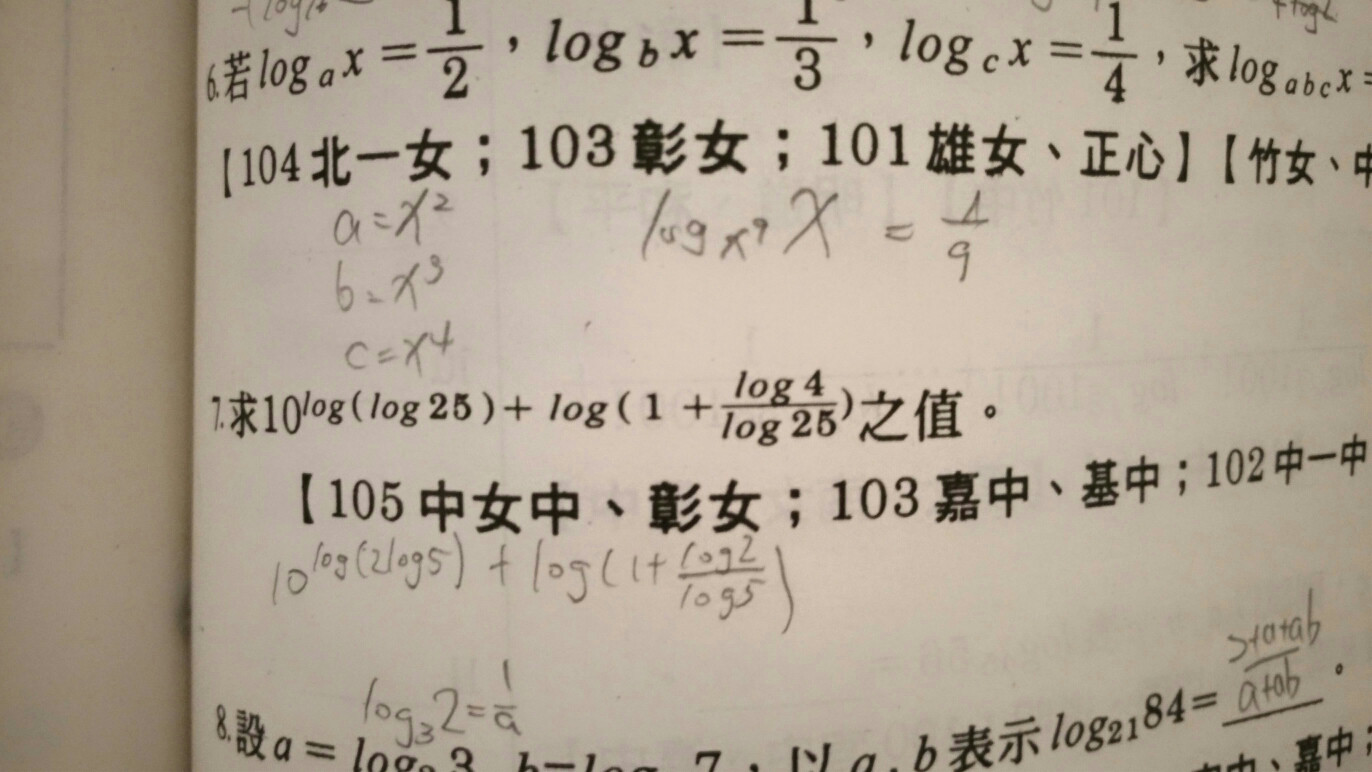 6.若 log_a x = 1/2 , log_b x = 1/3 , log_c x = 1/4 , 求 log_abc x =
【104 北一女;103 彰女;101 雄女、正心】【竹女、中
a=x² log_x⁹ x = 1/9
b=x³
c=x⁴
7.求10^log(log 25) + log(1 + log 4/log 25)之值。
【105 中女中、彰女;103 嘉中、基中;102 中一中
10^log(2log5) + log(1+ log2/log5)
log₃2=1/a
8.設 a = log 3 b=log 7 , 以 a, b 表示 log₂₁84= 2+a+ab/a+ab 。
中、嘉中;